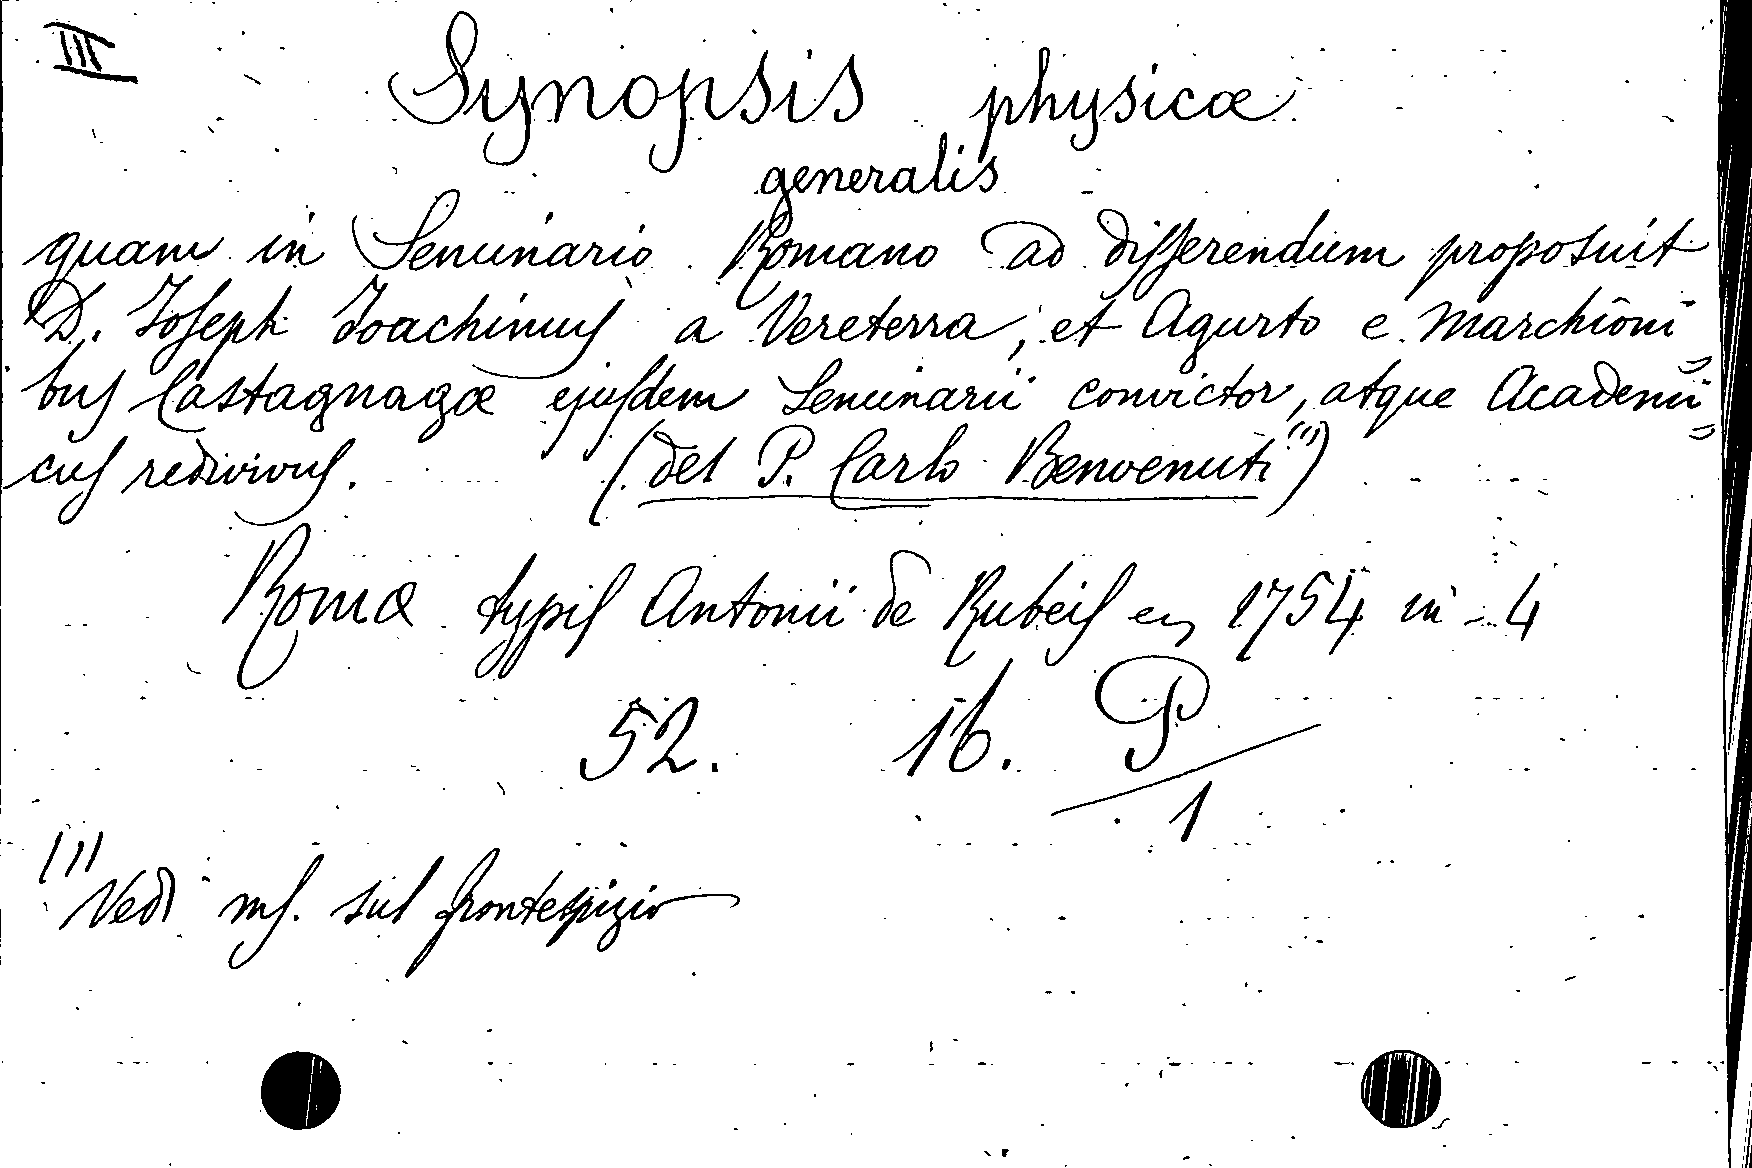 III
Synopsis physicæ
generalis
quam in Seminario Romano ad disserendum proposuit
D. Joseph Joachimus a Vereterra, et Agurto e Marchioni=
bus Castagnagæ ejusdem Seminarii convictor, atque Academi=
cus redivivus. (del P. Carlo Benvenuti (1))
Romæ typis Antonii de Rubeis en 1754 in-4
52. 16. P
1
(1) Vedi ms. sul frontespizio